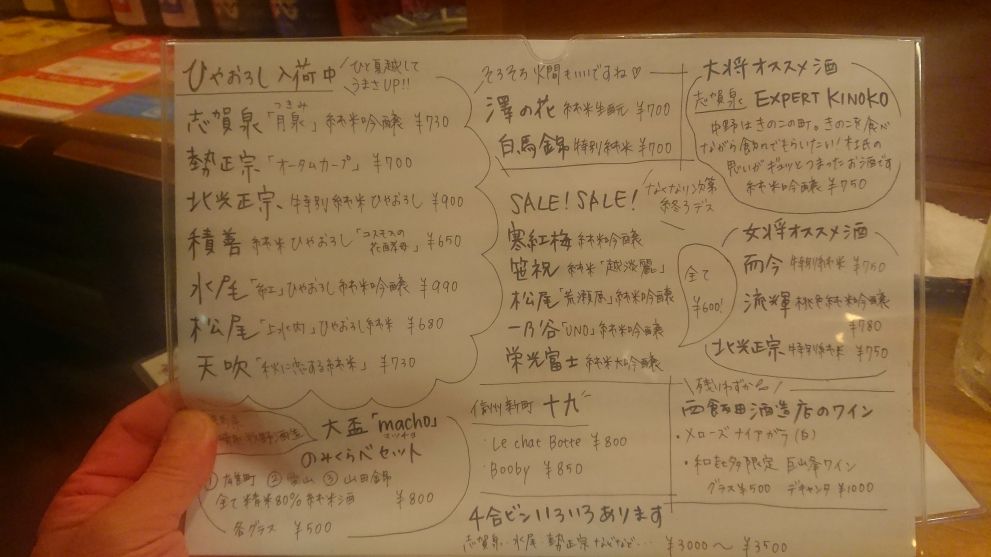 ひやおろし入荷中
ひと夏越して
うまさUP!!
志賀泉「月泉」純米吟醸 ¥730
つきみ
勢正宗「オータムカープ」 ¥700
北光正宗 特別純米ひやおろし ¥900
積善 純米ひやおろし「コスモスの花酵母」 ¥650
水尾「紅」ひやおろし純米吟醸 ¥990
松尾「上水内」ひやおろし純米 ¥680
天吹「秋に恋する純米」 ¥730
牧野酒造
大盃「macho」
マッチョ
のみくらべセット
①雄町 ② ③山田錦
全て精米80%純米酒 ¥800
各グラス ¥500
そろそろ火間もいいですね♡
澤の花 純米生酛 ¥700
白馬錦 特別純米 ¥700
SALE! SALE!
なくなり次第
終了デス
寒紅梅 純米吟醸
笹祝 純米「越淡麗」
松尾「荒瀬原」純米吟醸
一乃谷「UNO」純米吟醸
栄光冨士 純米大吟醸
全て
¥600!
信州新町 十九
・Le chat Botte ¥800
・Booby ¥850
大将オススメ酒
志賀泉 EXPERT KINOKO
中野はきのこの町。きのこを食べ
ながら飲んでもらいたい!杜氏の
思いがギュッとつまったお酒です
純米吟醸 ¥750
女将オススメ酒
而今 特別純米 ¥750
流輝 桃色純米吟醸
¥780
北光正宗 特別純米 ¥750
残りわずか
西飯田酒造店のワイン
・メローズナイアガラ(白)
・和喜多限定 巨峰ワイン
グラス¥500 デキャンタ ¥1000
4合ビンいろいろあります
志賀泉・水尾・勢正宗 などなど… ¥3000〜¥3500